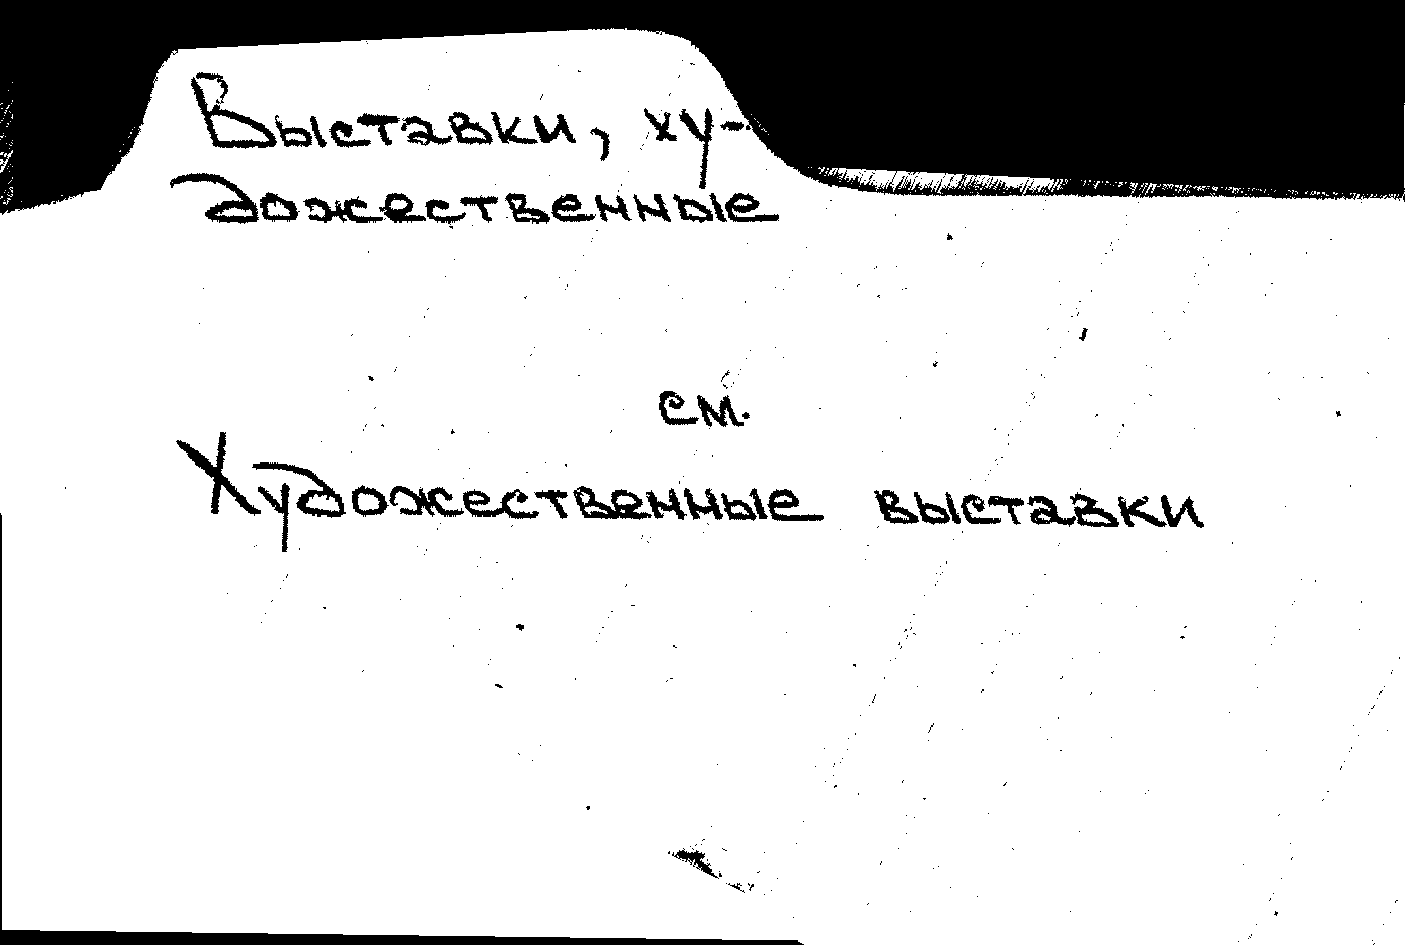 Выставки, ху-
дожественные
см.
Художественные выставки